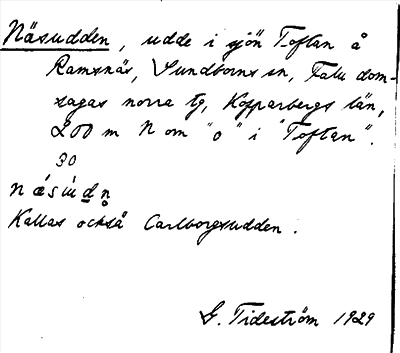 Näsudden, udde i sjön Toftan å
Ramsnäs, Sundborns sn, Falu dom-
sagas norra tg, Kopparbergs län,
200 m N om "o" i "Toftan".
30
nǽsùdn̥
Kallas också Carlborgsudden.
G. Tideström 1929